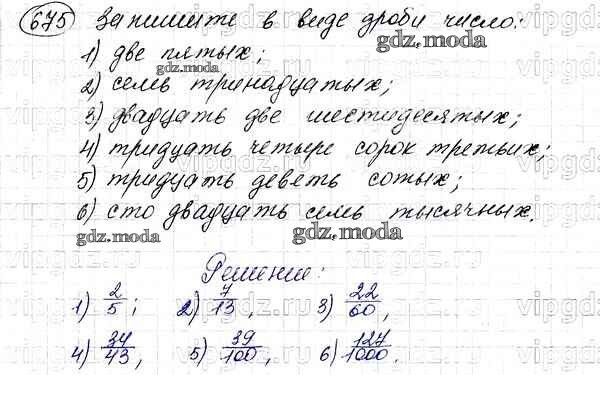 675 Запишите в виде дроби число:
gdz.moda
1) две пятых;
gdz.moda
2) семь тринадцатых;
3) двадцать две шестидесятых;
4) тридцать четыре сорок третьих;
5) тридцать девять сотых;
6) сто двадцать семь тысячных.
gdz.moda gdz.moda
Решение:
1) 2/5; 2) 7/13, 3) 22/60,
4) 34/43, 5) 39/100, 6) 127/1000.